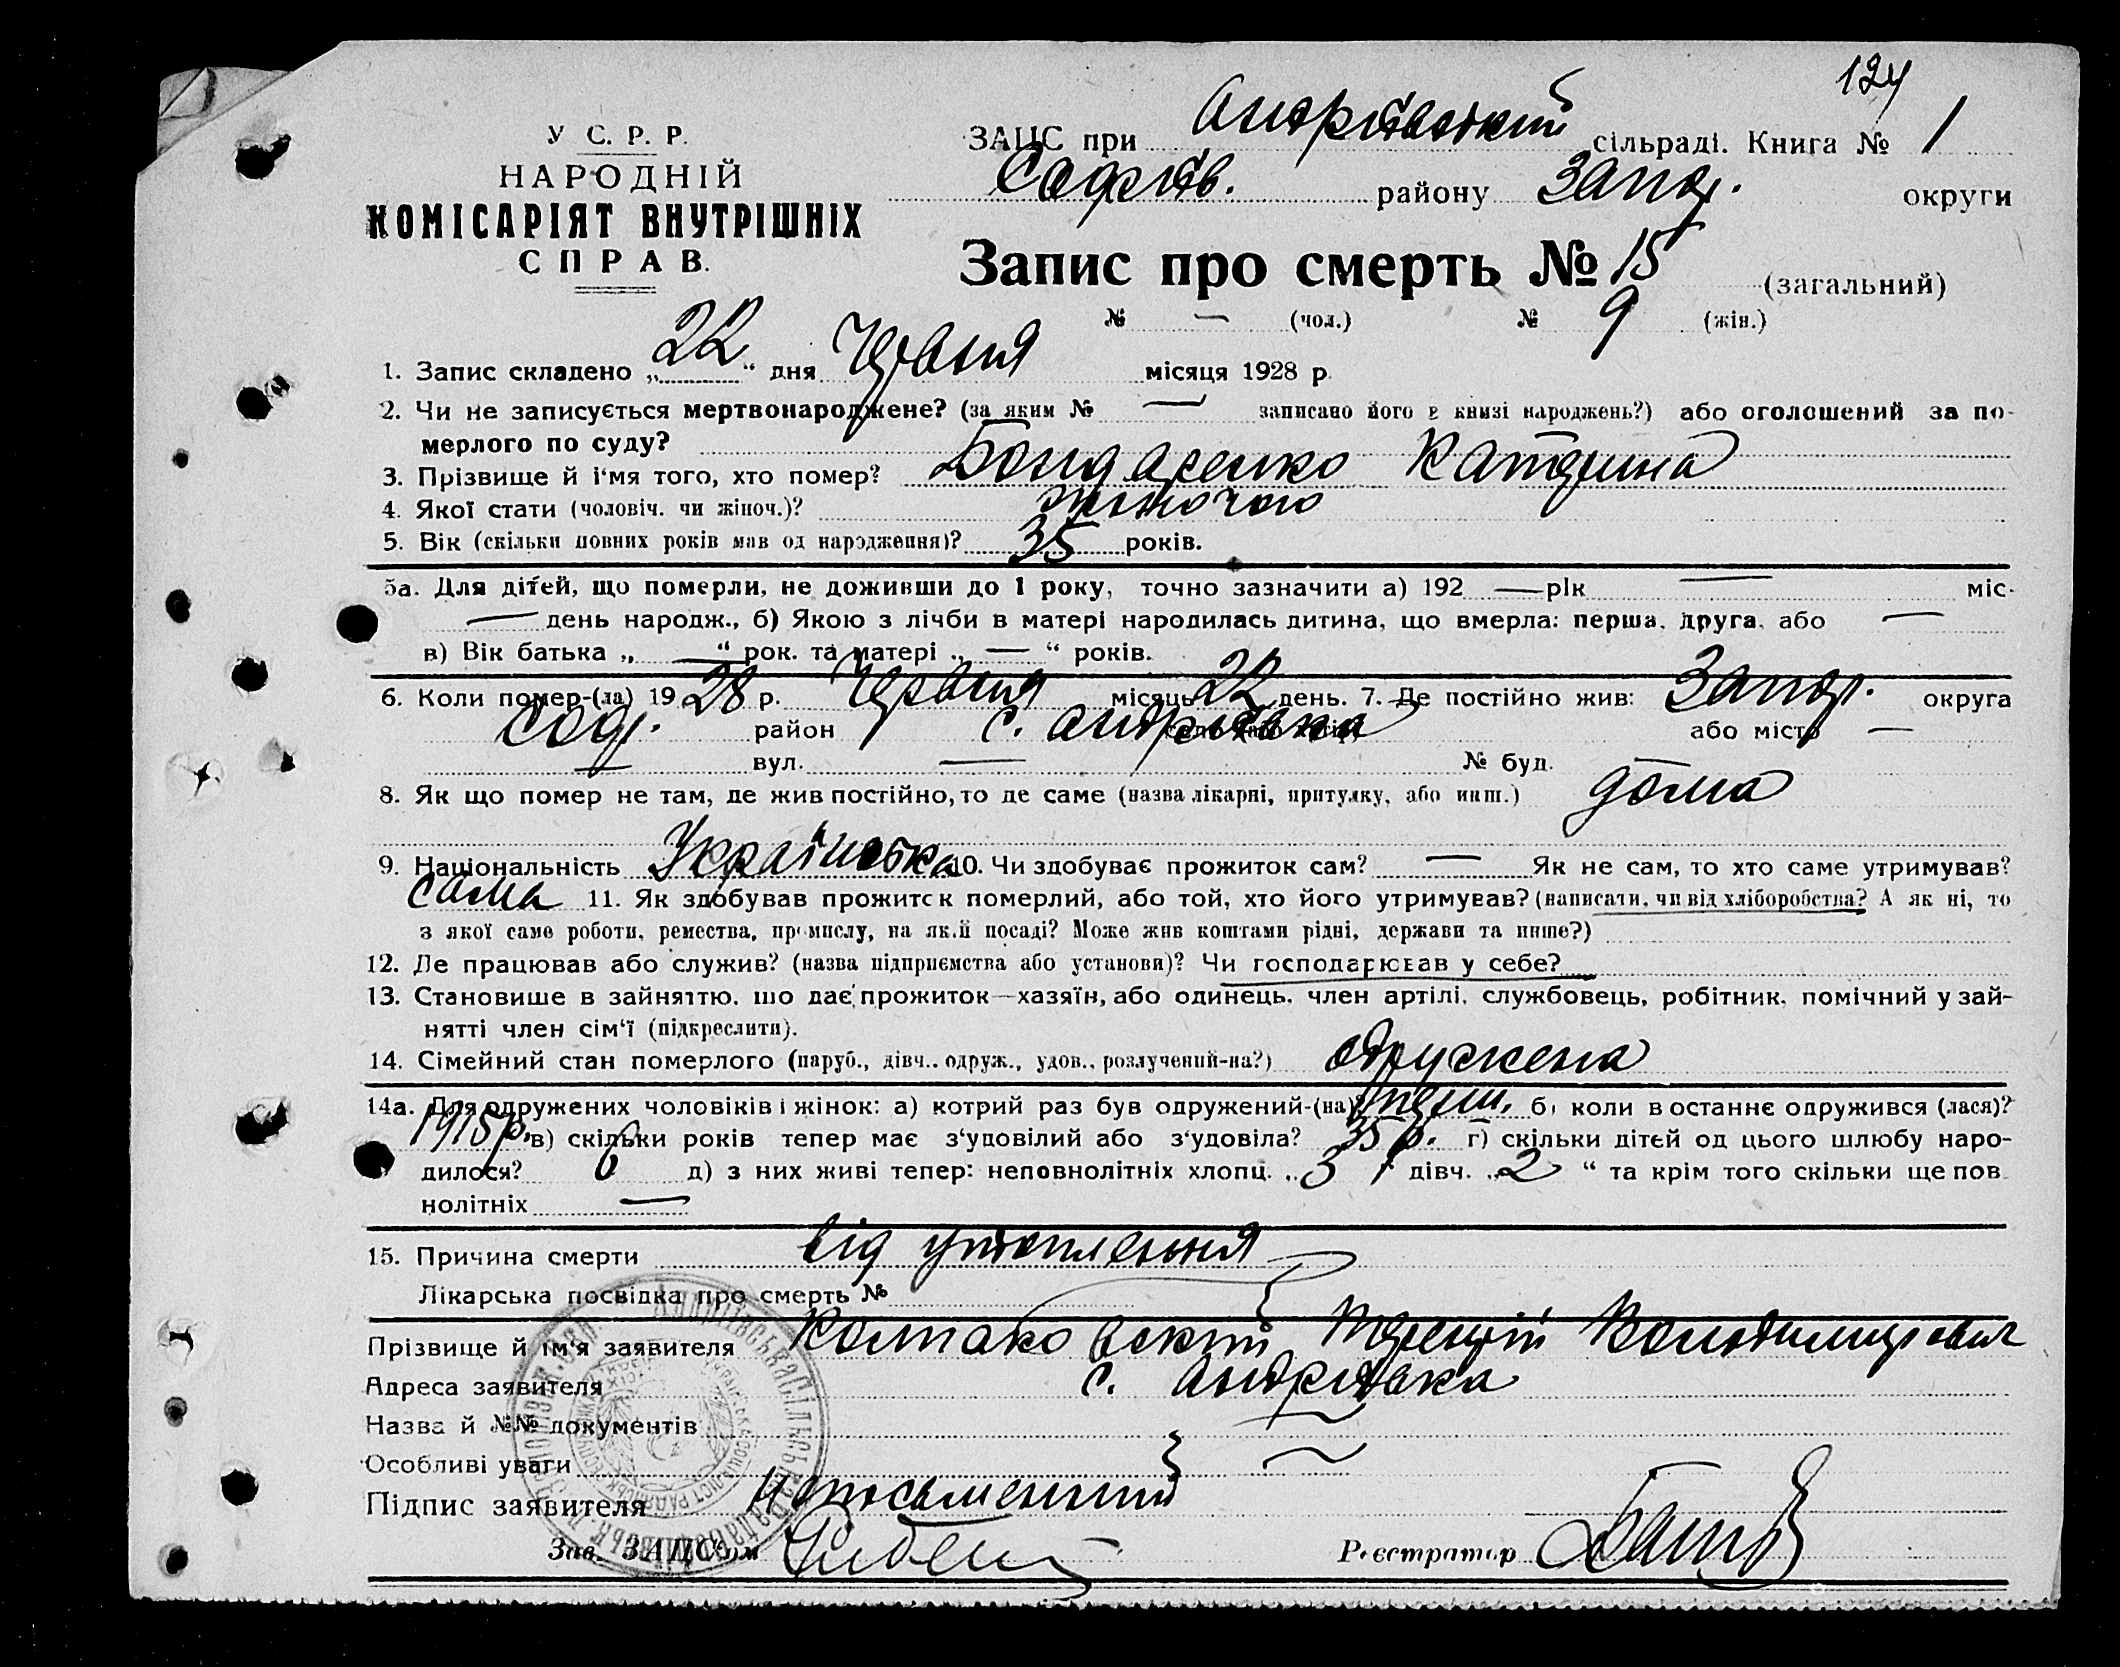 124
У С. Р. Р.
НАРОДНІЙ
КОМІСАРІЯТ ВНУТРІШНІХ
СПРАВ.
ЗАЦС при Андріївській сільраді. Книга № 1
Софіїв. району Запор. округи
Запис про смерть № 15 (загальний)
№ — (чол.) № 9 (жін.)
1. Запис складено „22“ дня Червня місяця 1928 р.
2. Чи не записується мертвонароджене? (за яким № — записано його в книзі народжень?) або оголошений за по-
мерлого по суду?
3. Прізвище й і'мя того, хто помер? Бондаренко Катерина
4. Якої стати (чоловіч. чи жіноч.)? жіночого
5. Вік (скільки повних років мав од народження)? 35 років.
5а. Для дітей, що померли, не доживши до 1 року, точно зазначити а) 192 — рік — міс.
— день народж., б) Якою з лічби в матері народилась дитина, що вмерла: перша, друга, або —
в) Вік батька „ — “ рок. та матері „ — “ років.
6. Коли помер-(ла) 1928 р. Червня місяць 22 день. 7. Де постійно жив: Запор. округа
Соф. район с. Андріївка або місто —
— вул. — № буд.
8. Як що помер не там, де жив постійно, то де саме (назва лікарні, притулку, або инш.) дома
9. Національність Українська 10. Чи здобуває прожиток сам? — Як не сам, то хто саме утримував?
сама 11. Як здобував прожиток померлий, або той, хто його утримував? (написати, чи від хліборобства? А як ні, то
з якої саме роботи, ремества, промислу, на якій посаді? Може жив коштами рідні, держави та инше?)
12. Де працював або служив? (назва підприємства або установи)? Чи господарював у себе?
13. Становище в зайняттю, що дає прожиток—хазяїн, або одинець, член артілі, службовець, робітник, помічний у зай-
нятті член сім'ї (підкреслити).
14. Сімейний стан померлого (паруб., дівч., одруж., удов., розлучений-на?) одружена
14а. Для одружених чоловіків і жінок: а) котрий раз був одружений-(на)? перш. б) коли в останнє одружився (лася)?
1915 р. в) скільки років тепер має з'удовілий або з'удовіла? 35 р. г) скільки дітей од цього шлюбу наро-
дилося? 6 д) з них живі тепер: неповнолітніх хлопц. „3“ дівч. „2“ та крім того скільки ще пов-
нолітніх —
15. Причина смерти від утоплення
Лікарська посвідка про смерть №
Прізвище й ім'я заявителя Колпаковський Терентій Володимирович
Адреса заявителя с. Андріївка
Назва й №№ документів —
Особливі уваги —
Підпис заявителя Неписьменний
Зав. ЗАЦС'ом
Реєстратор